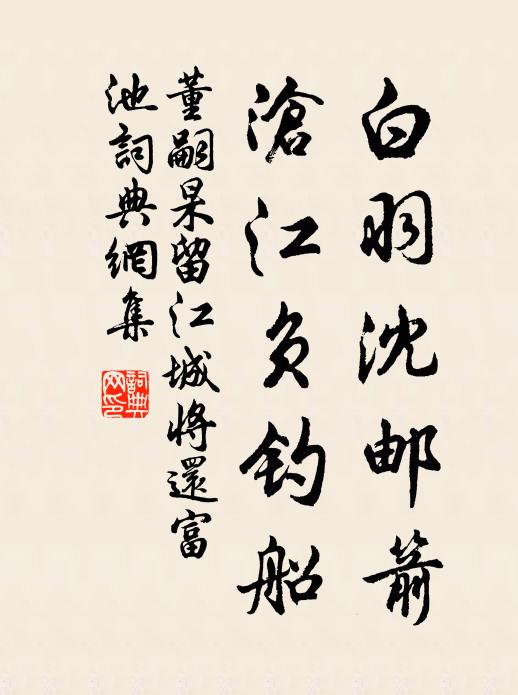 白羽沈邮箭
滄江負钓船
董嗣杲留江城将還富
池詞典網集
詞典
网印